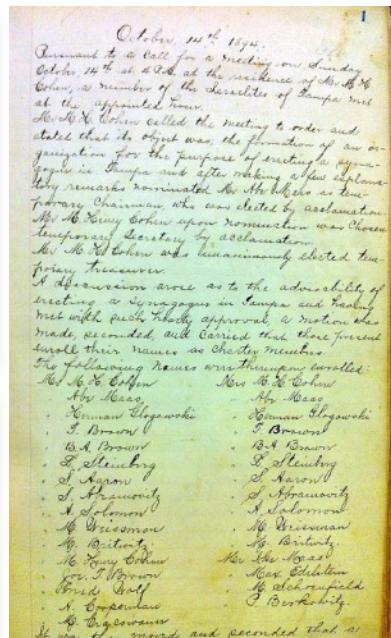 1
October, 14th 1894.
Pursuant to a call for a meeting on Sunday
October, 14th at 4 P.M. at the residence of Mr. M. H.
Cohen, a number of the Israelites of Tampa met
at the appointed hour.
Mr. M. H. Cohen called the meeting to order and
stated that its object was, the formation of an or-
ganization for the purpose of erecting a syna-
gogue in Tampa and after making a few explana-
tory remarks nominated Mr. Abe Maas as tem-
porary Chairman, who was elected by acclamation.
Mr. M. Henry Cohen upon nomination was chosen
temporary Secretary by acclamation.
Mr. M. H. Cohen was unanimously elected tem-
porary treasurer.
A discussion arose as to the advisability of
erecting a synagogue in Tampa and having
met with such hearty approval, a motion was
made, seconded, and carried that those present
enroll their names as charter members.
The following names were thereupon enrolled:
Mr. M. H. Cohen Mrs. M. H. Cohen
" Abe Maas " Abe Maas
" Herman Glogowski " Herman Glogowski
" I. Brown " I. Brown
" B. A. Brown " B. A. Brown
" L. Steinberg " L. Steinberg
" S. Aaron " S. Aaron
" S. Abramovitz " S. Abramovitz
" A. Solomon " A. Solomon
" M. Weissman " M. Weissman
" M. Britwitz " M. Britwitz
" M. Henry Cohen Mr. Maas
I. Brown " Max Edelstein
Wolf " M. Schoenfield
" A. Cooperman " P. Berkowitz
" M.
It was then moved and seconded that a